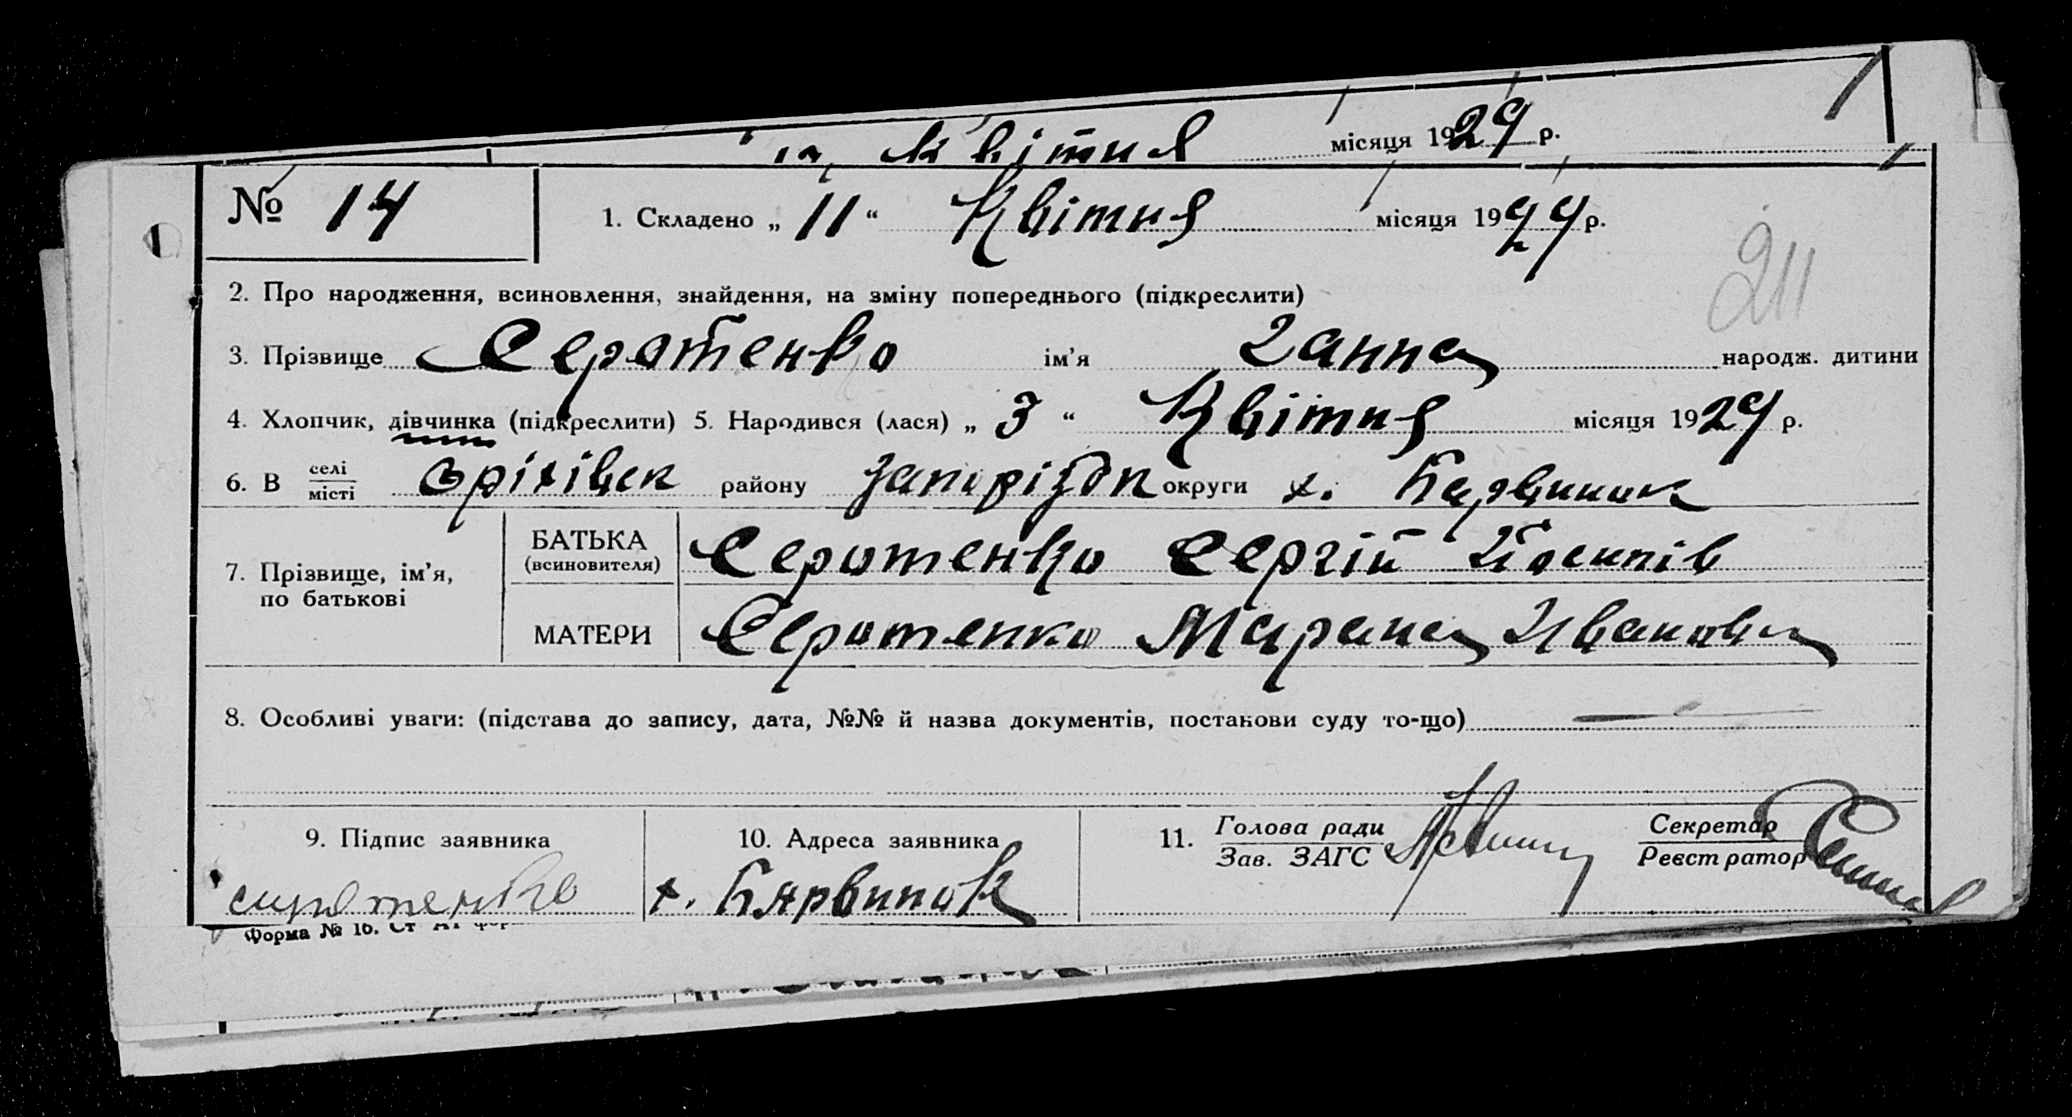 Квітня місяця 1929 р.
№ 14
1. Складено „ 11 “ Квітня місяця 1929 р.
211
2. Про народження, всиновлення, знайдення, на зміну попереднього (підкреслити)
3. Прізвище Серотенко ім’я Ганна народж. дитини
4. Хлопчик, дівчинка (підкреслити) 5. Народився (лася) „ 3 “ Квітня місяця 1929 р.
6. В селі/місті Оріхівск району Запоріздк округи х. Барвинок
7. Прізвище, ім’я, по батькові
БАТЬКА (всиновителя) Серотенко Сергій Йосипів
МАТЕРИ Серотенко Марина Иванови
8. Особливі уваги: (підстава до запису, дата, №№ й назва документів, постанови суду то-що)
9. Підпис заявника
сиротенко
10. Адреса заявника
х. Барвинок
11. Голова ради
Зав. ЗАГС
Секретар
Реєстратор
Форма № 16. Ст